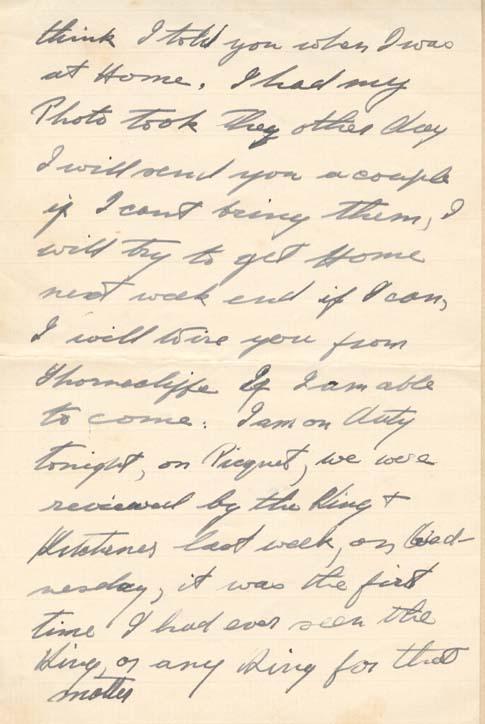 think I told you when I was
at Home. I had my
Photo took they other day
I will send you a couple
if I cant bring them, I
will try to get Home
next week end if I can,
I will wire you from
Shorncliffe If I am able
to come. I am on duty
tonight, on Picquet, we were
reviewed by the King +
Kitchener last week, on Wed-
nesday, it was the first
time I had ever seen the
King, or any King for that
matter